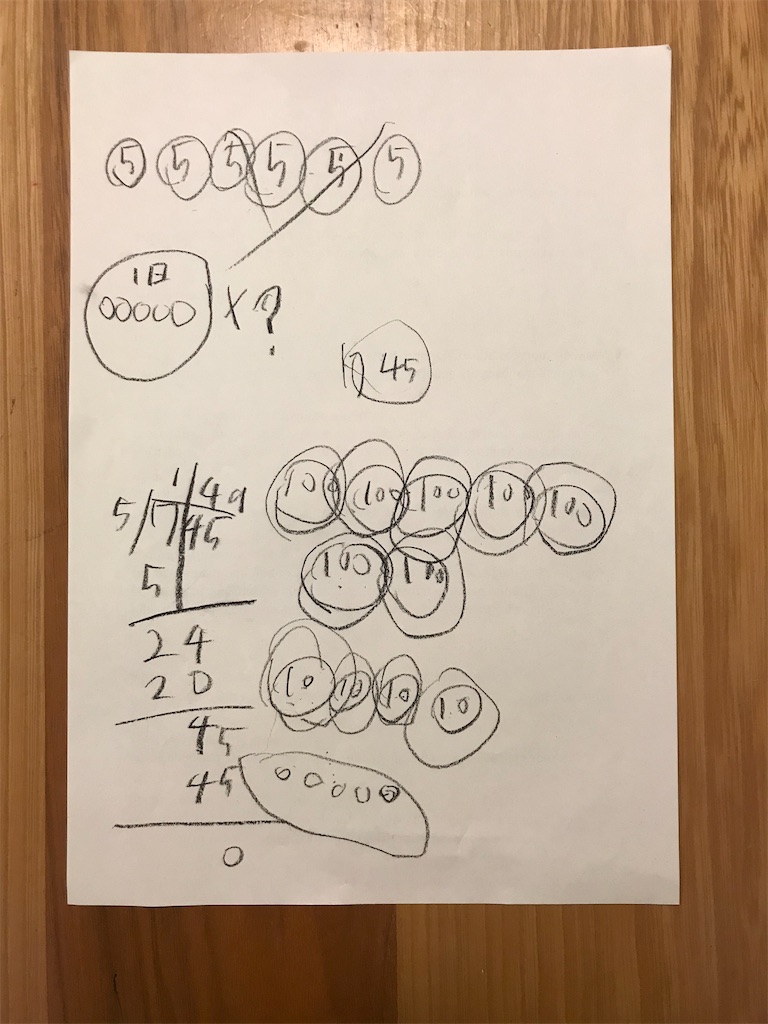 5 5 5 5 5 5
1日
00000 × ?
745
149
5/745
5
100 100 100 100 100
100 100
24
20
10 10 10 10
45
45
00000
0